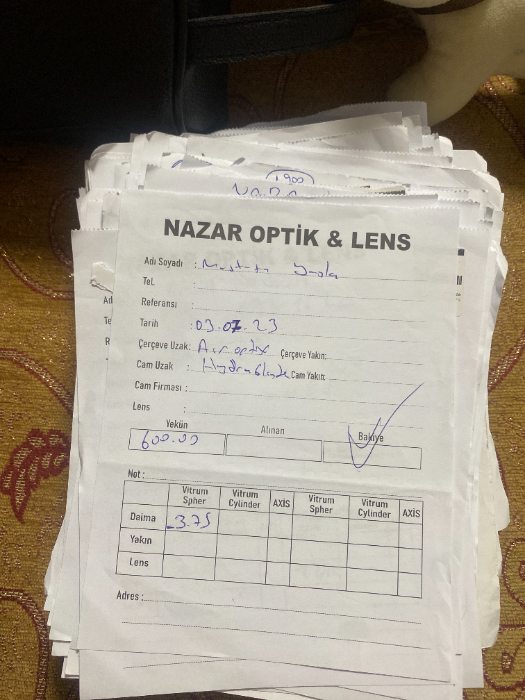 1900
NAZAR OPTİK & LENS
Adı Soyadı :
Tel.
Referansı :
Tarih : 03.07.23
Çerçeve Uzak: Air optix Çerçeve Yakın:
Cam Uzak : Cam Yakın:
Cam Firması :
Lens :
Yekün Alınan Bakiye
600.00
Not :
Vitrum Spher Vitrum Cylinder AXİS Vitrum Spher Vitrum Cylinder AXİS
Daima -3.75
Yakın
Lens
Adres :